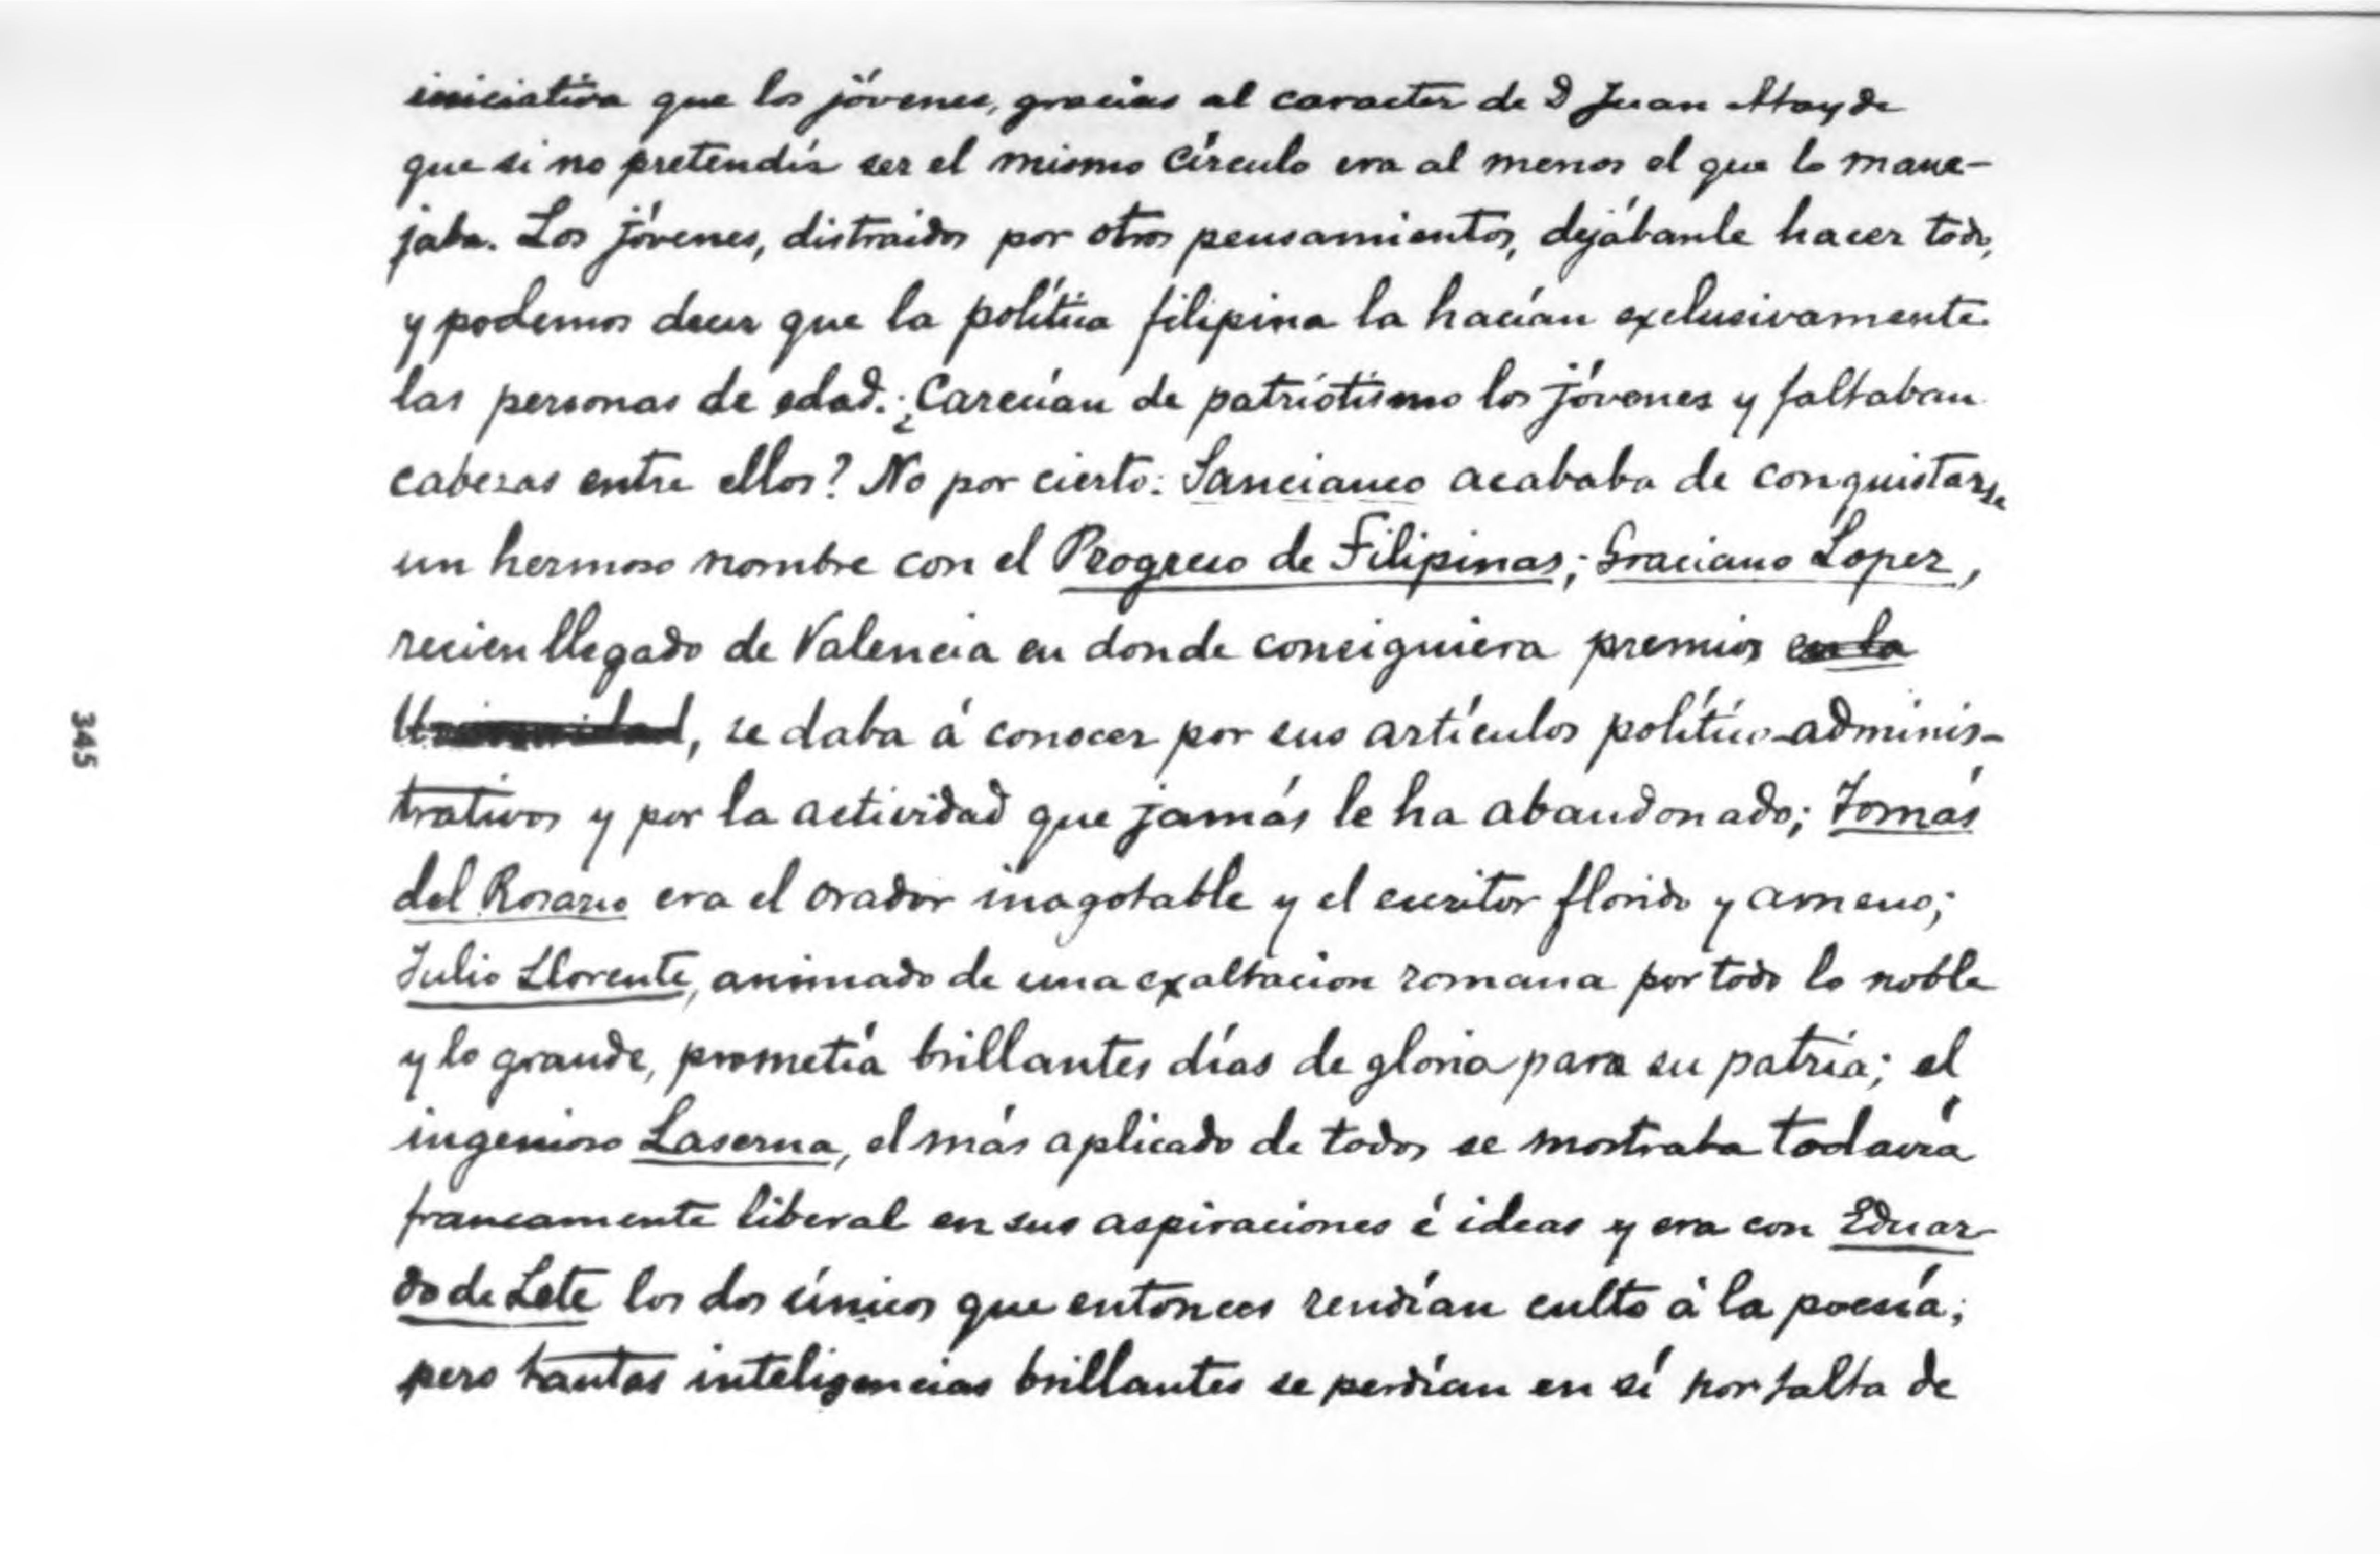 iniciativa que los jóvenes, gracias al caracter de D Juan Atayde
que si no pretendía ser el mismo Círculo era al menos el que lo mane-
jaba. Los jóvenes, distraidos por otros pensamientos, dejábanle hacer todo,
y podemos decir que la política filipina la hacían exclusivamente
las personas de edad. ¿Carecían de patriotismo los jóvenes y faltaban
cabezas entre ellos? No por cierto: Sancianco acababa de conquistarse
un hermoso nombre con el Progreso de Filipinas; Graciano Lopez,
recien llegado de Valencia en donde consiguiera premios en la
Universidad, se daba á conocer por sus artículos político-adminis-
trativos y por la actividad que jamás le ha abandonado; Tomás
del Rosario era el orador inagotable y el escritor florido y ameno;
Julio Llorente, animado de una exaltacion romana por todo lo noble
y lo grande, prometía brillantes días de gloria para su patria; el
ingenioso Laserna, el más aplicado de todos se mostraba todavía
francamente liberal en sus aspiraciones é ideas y era con Eduar-
do de Lete los dos únicos que entonces rendían culto á la poesía;
pero tantas inteligencias brillantes se perdían en sí por falta de
345